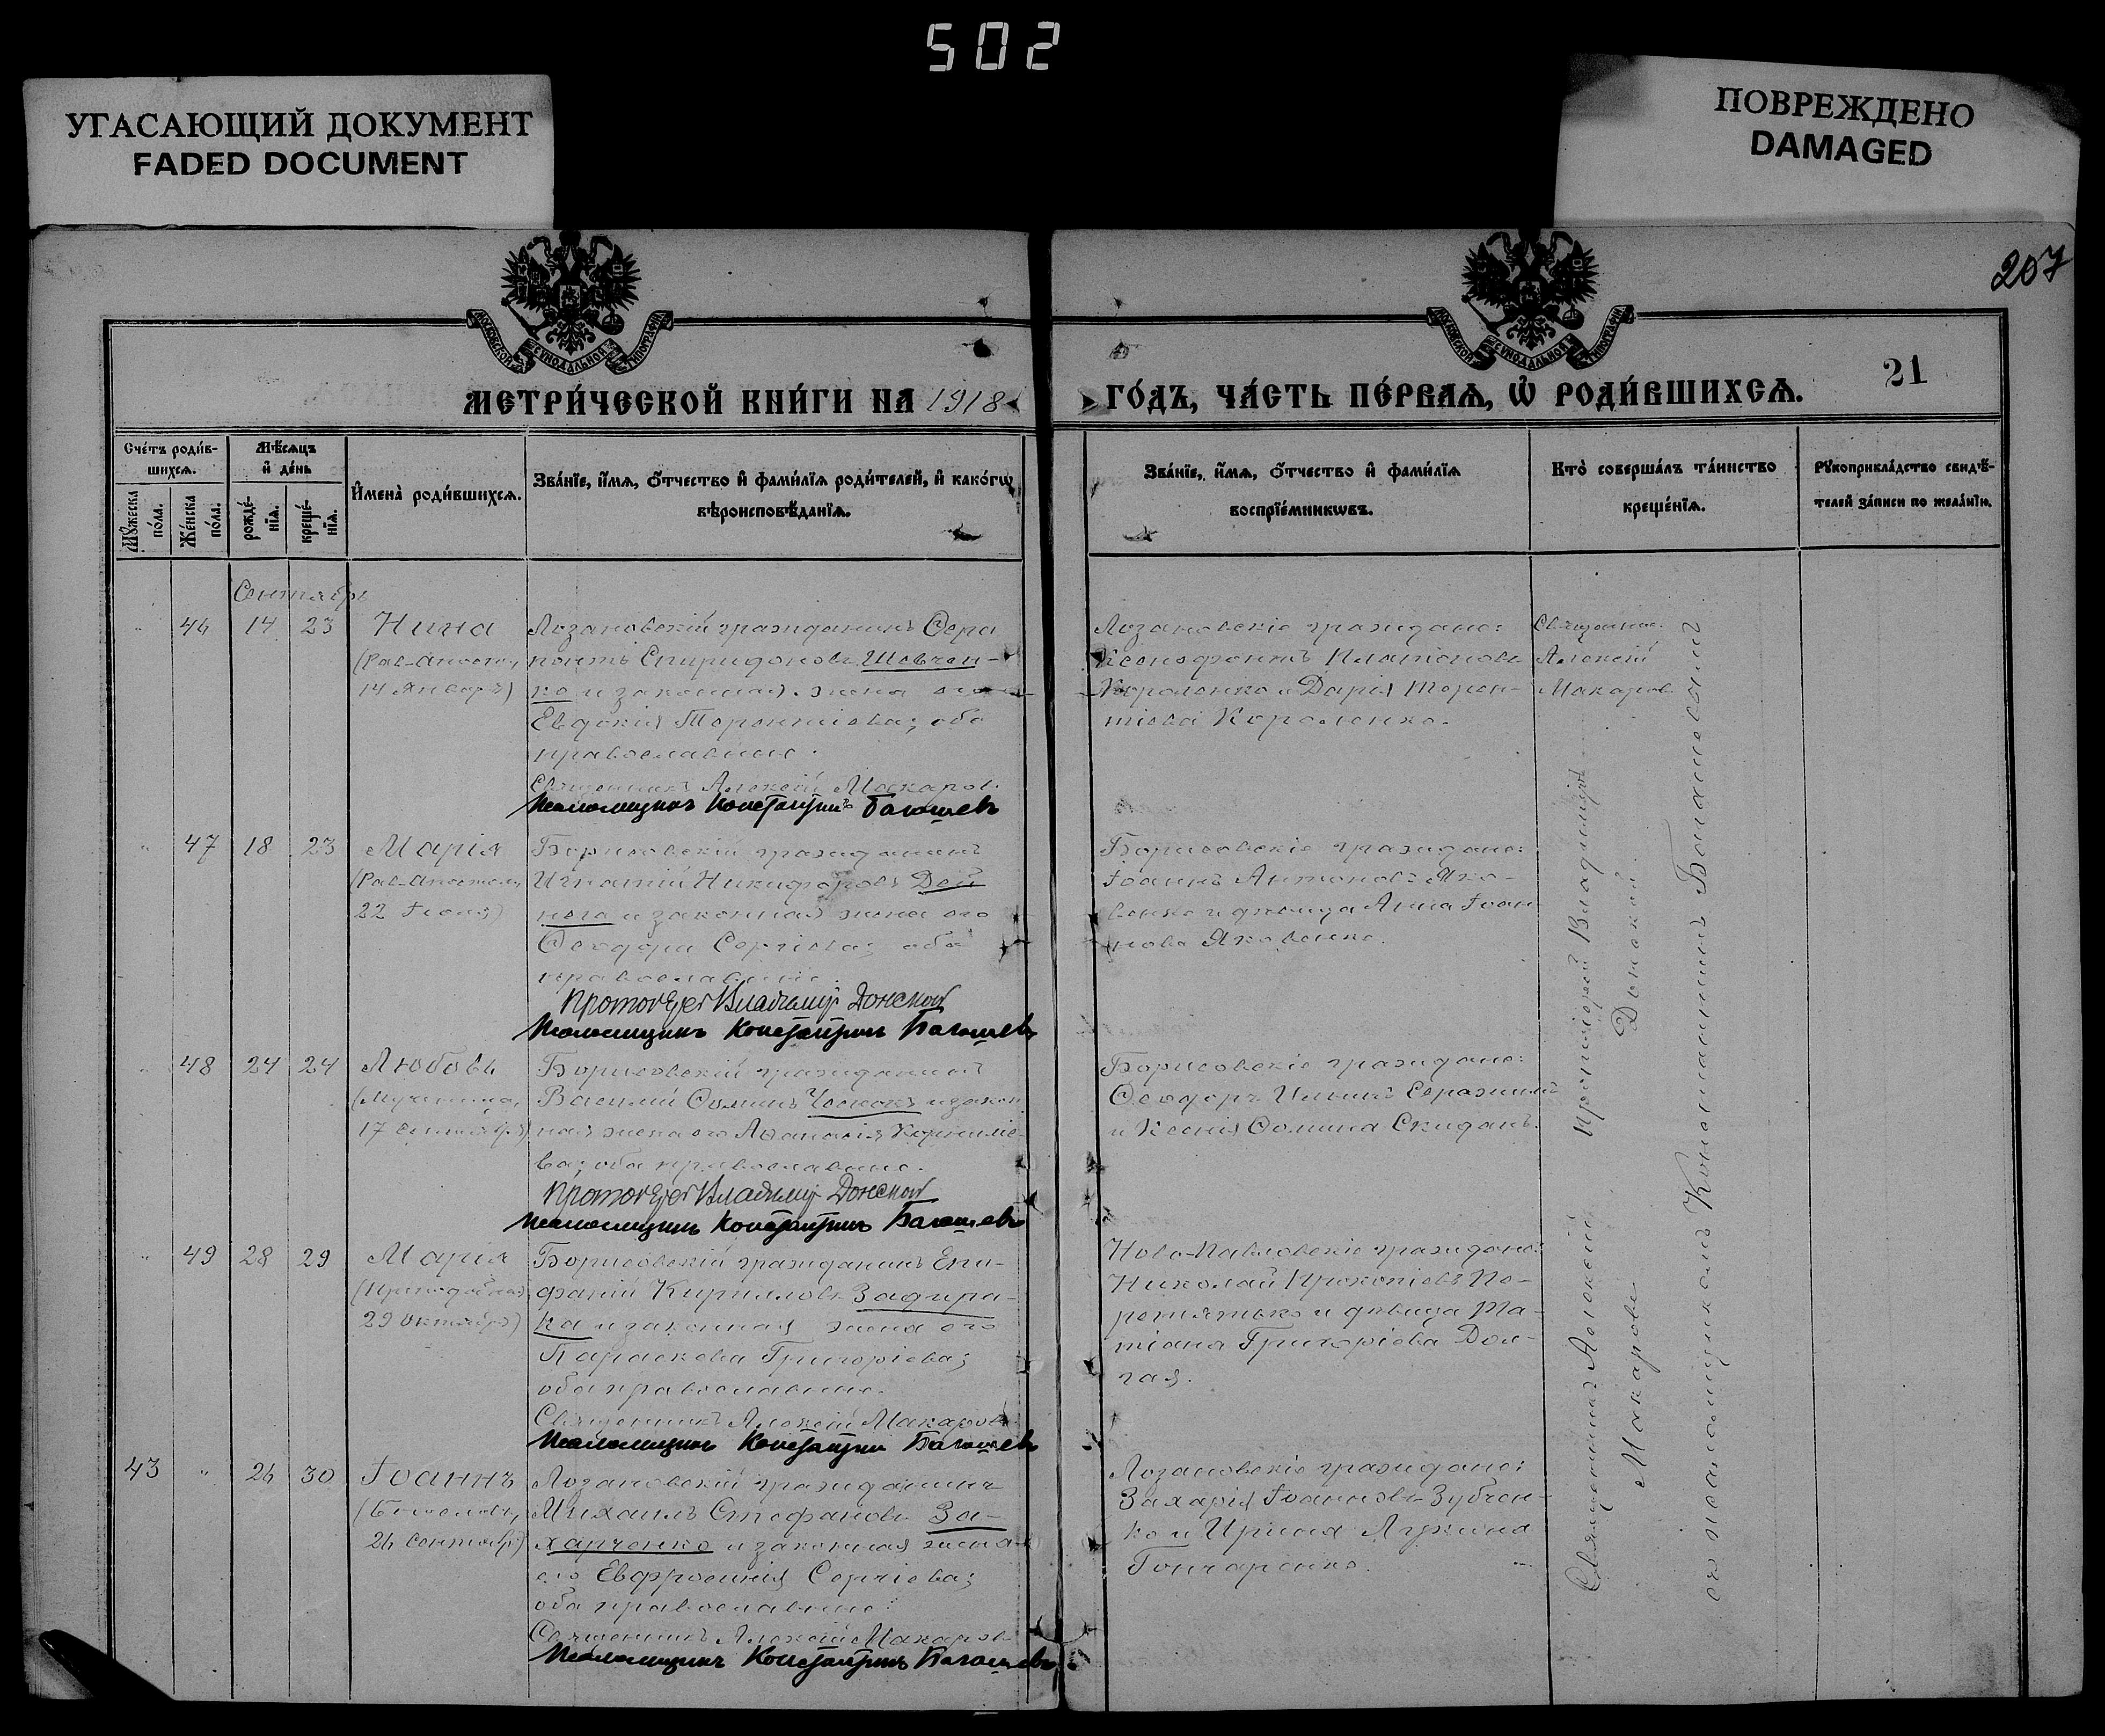 502
УГАСАЮЩИЙ ДОКУМЕНТ
FADED DOCUMENT
ПОВРЕЖДЕНО
DAMAGED
207
МОСКОВСКОЙ СѴНОДАЛЬНОЙ ТИПОГРАФІИ
МОСКОВСКОЙ СѴНОДАЛЬНОЙ ТИПОГРАФІИ
21
МЕТРИ́ЧЕСКОЙ КНИ́ГИ НА 1918
ГО́ДЪ, ЧА́СТЬ ПЕ́РВАѦ, Ѡ҆ РОДИ́ВШИХСѦ.
Сче́тъ роди́в-
шихсѧ.
Мꙋ́жеска
по́ла.
Же́нска
по́ла.
Мѣ́сѧцъ
и҆ де́нь
рожде́-
нїѧ.
креще́-
нїѧ.
И҆мена̀ роди́вшихсѧ.
Зва́нїе, и҆́мѧ, ѻ҆́тчество и҆ фами́лїѧ роди́телей, и҆ како́гѡ
вѣроисповѣ́данїѧ.
Зва́нїе, и҆́мѧ, ѻ҆́тчество и҆ фами́лїѧ
воспрїе́мникѡвъ.
Кто̀ соверша́лъ та́инство
креще́нїѧ.
Рꙋкоприкла́дство свидѣ́-
телей за́писи по жела́нїю.
Сентябрь
46 14 23 Нина
(Рав-Апост.,
14 Января)
Лозановскій гражданинъ Ѳера
понтъ Спиридоновъ Шевчен-
ко и законная жена его
Евдокія Терентіева; оба
православные.
Священникъ Алексій Макаров.
Псаломщикъ Константинъ Багашевъ
Лозановскіе граждане:
Ксенофонтъ Платоновъ
Короленко и Дарія Терен-
тіева Короленко.
Священник
Алексій
Макаров
47 18 23 Марія
(Рав-Апостол,
22 Іюля)
Борисовскій гражданинъ
Игнатій Никифоровъ Дей
нега и законная жена его
Ѳеодора Сергіева; оба
православные.
Протоіерей Владимір Донской
Псаломщикъ Константинъ Багашевъ
Борисовскіе граждане:
Іоаннъ Антоновъ Яко-
венко и дѣвица Анна Іоан-
нова Яковенко.
48 24 24 Любовь
(Мученица,
17 Сентября)
Борисовскій гражданинъ
Василій Ѳоминъ и закон
ная жена его Аѳанасія Корниліе-
ва; оба православные.
Протоіерей Владимір Донской
Псаломщикъ Константинъ Багашевъ
Борисовскіе граждане:
Ѳеодоръ Ильинъ
и Ксенія Ѳомина Скиданъ.
49 28 29 Марія
(Преподобная,
29 Октября)
Борисовскій гражданинъ Епи-
фаній Кирилловъ Задира-
ка и законная жена его
Параскева Григоріева;
оба православные.
Священникъ Алексій Макаров
Псаломщикъ Константинъ Багашевъ
Ново-Павловскіе граждане:
Николай Прокопіевъ Пе-
ретятько и дѣвица Та-
тіана Григоріева Дол-
гая.
43 26 30 Іоаннъ
(Богослов,
26 Сентября)
Лозановскій гражданинъ
Михаилъ Стефановъ За-
харченко и законная жена
его Евфросинія Сергіева;
оба православные.
Священникъ Алексій Макаров
Псаломщикъ Константинъ Багашевъ
Лозановскіе граждане:
Захарія Іоанновъ Зубчен-
ко и Ирина Лукина
Гончаренко.
Священникъ Алексій
Макаровъ
Протоіерей Владиміръ
Донской
съ псаломщикомъ Константиномъ